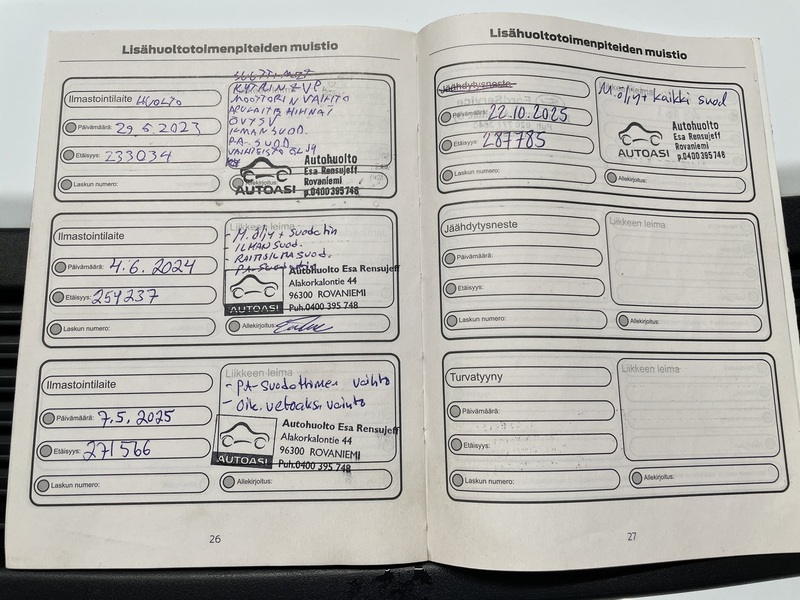 Lisähuoltotoimenpiteiden muistio
Ilmastointilaite HUOLTO
Päivämäärä: 29.5.2023
Etäisyys: 233034
Laskun numero:
MOOTTORIN VAIHTO
APULAITE HIHNAT
ILMAN SUOD.
P.A. SUOD
Allekirjoitus:
AUTOASI
Autohuolto
Esa Rensujeff
Rovaniemi
p.0400 395 748
Ilmastointilaite
Päivämäärä: 4.6.2024
Etäisyys: 254237
Laskun numero:
Liikkeen leima
- M.öljy + suodatin
- ILMAN SUOD.
- RAITISILMA SUOD.
- PA-Suodatin
AUTOASI
Autohuolto Esa Rensujeff
Alakorkalontie 44
96300 ROVANIEMI
Puh.0400 395 748
Allekirjoitus:
Ilmastointilaite
Päivämäärä: 7.5.2025
Etäisyys: 271566
Laskun numero:
Liikkeen leima
- PA-Suodattimen vaihto
- Oik. vetoaksi vaihto
AUTOASI
Autohuolto Esa Rensujeff
Alakorkalontie 44
96300 ROVANIEMI
Puh.0400 395 748
Allekirjoitus:
26
Lisähuoltotoimenpiteiden muistio
Jäähdytysneste
Päivämäärä: 22.10.2025
Etäisyys: 287785
Laskun numero:
M.öljy + kaikki suod
AUTOASI
Autohuolto
Esa Rensujeff
Rovaniemi
p.0400 395 748
Allekirjoitus:
Jäähdytysneste
Päivämäärä:
Etäisyys:
Laskun numero:
Liikkeen leima
Allekirjoitus:
Turvatyyny
Päivämäärä:
Etäisyys:
Laskun numero:
Liikkeen leima
Allekirjoitus:
27